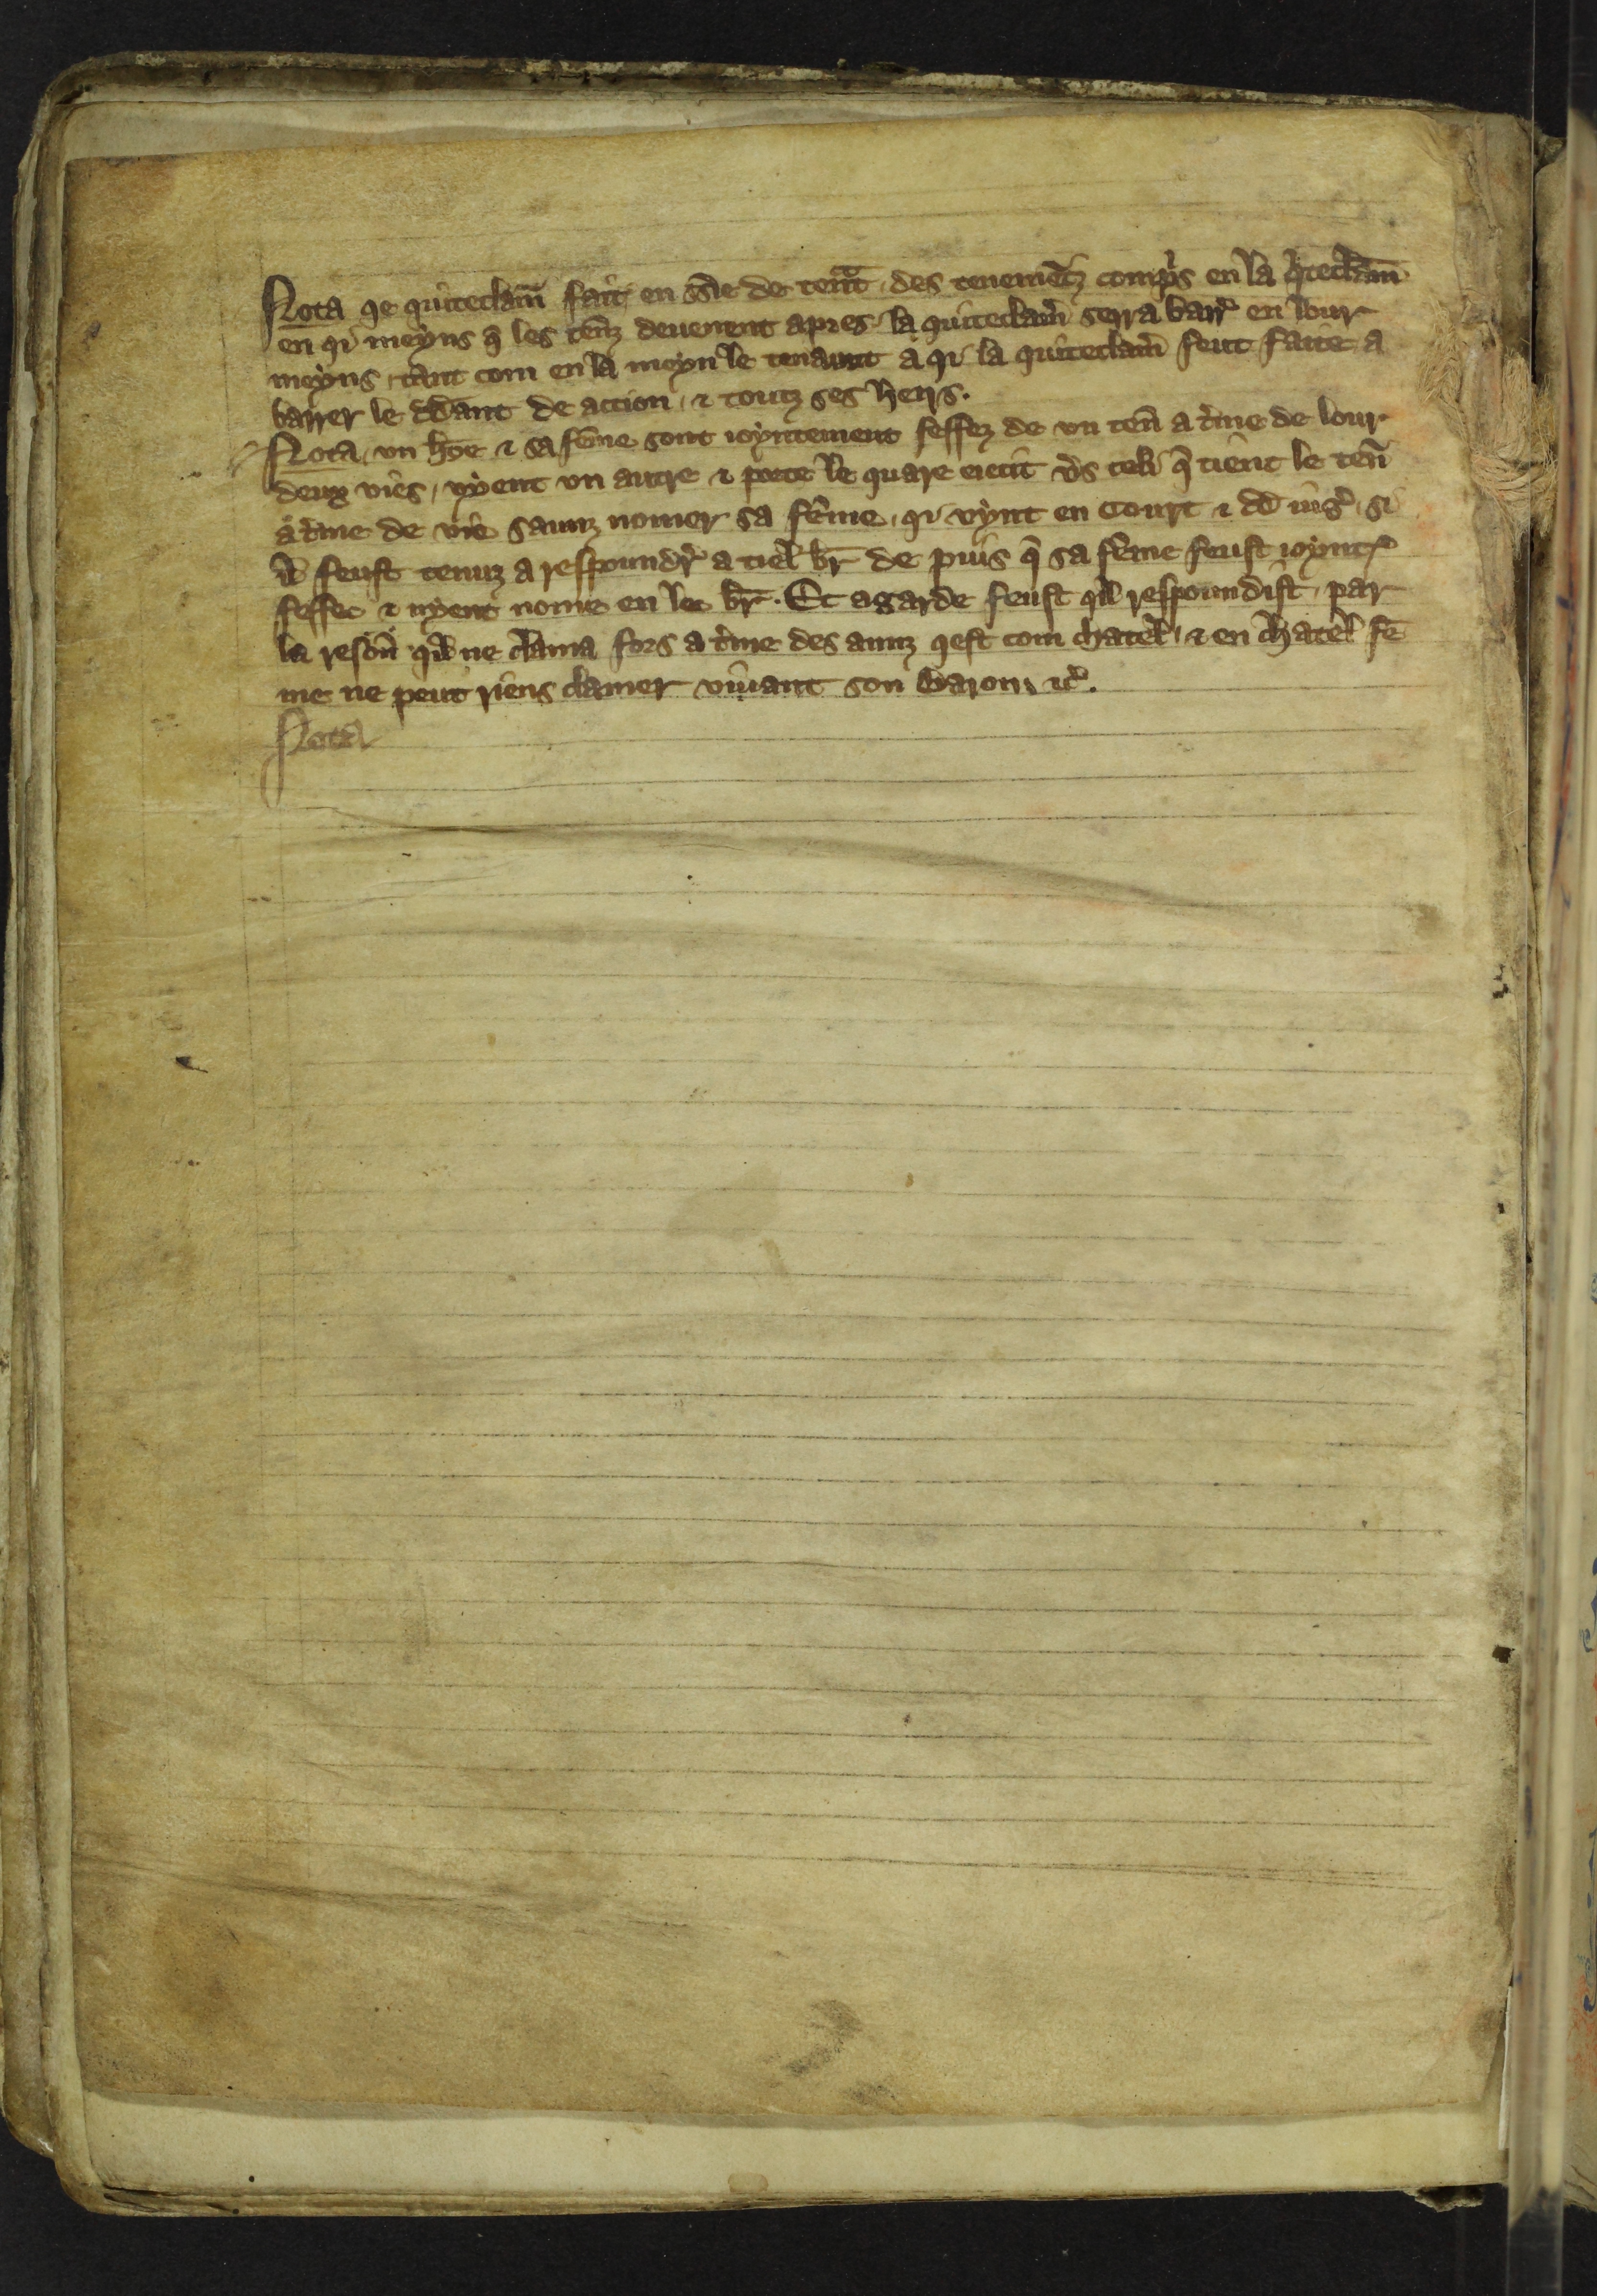 Nota qe quiteclam̄ fait en s̄s̄ie de ten̄t des tenemētz comp̄s en la q̄iteclam̄
en qi meyns q̄ les ten̄z deuenent apres la quiteclam̄ serra barr̄ en lour
meyns tant com en la meyn le tenaunt a qi la quiteclam̄ feut faite a
barrer le dd̄ant de action ⁊ toutz ses heirs.
Nota vn hōe ⁊ sa fēme sont ioyntement feffez de vn ten̄ a t̄me de lour
deux vies, vyent vn autre ⁊ porte le quare eiecit v̄s celi q̄ tient le ten̄
a t̄me de vie saunz nomer sa fēme, qi vynt en Court ⁊ dd̄ iuḡ, si
il feust tenuz a respoundr̄ a tiel br̄ de puis q̄ sa fēme feust ioynt
feffee ⁊ nyent nome en le br̄. Et agarde feust qil respoundist, par
la reson̄ qil ne clama fors a t̄me des aunz qest com chatel, ⁊ en chatel fē
me ne peut riens clamer viuant son Baron, ⁊c̄.
Nota